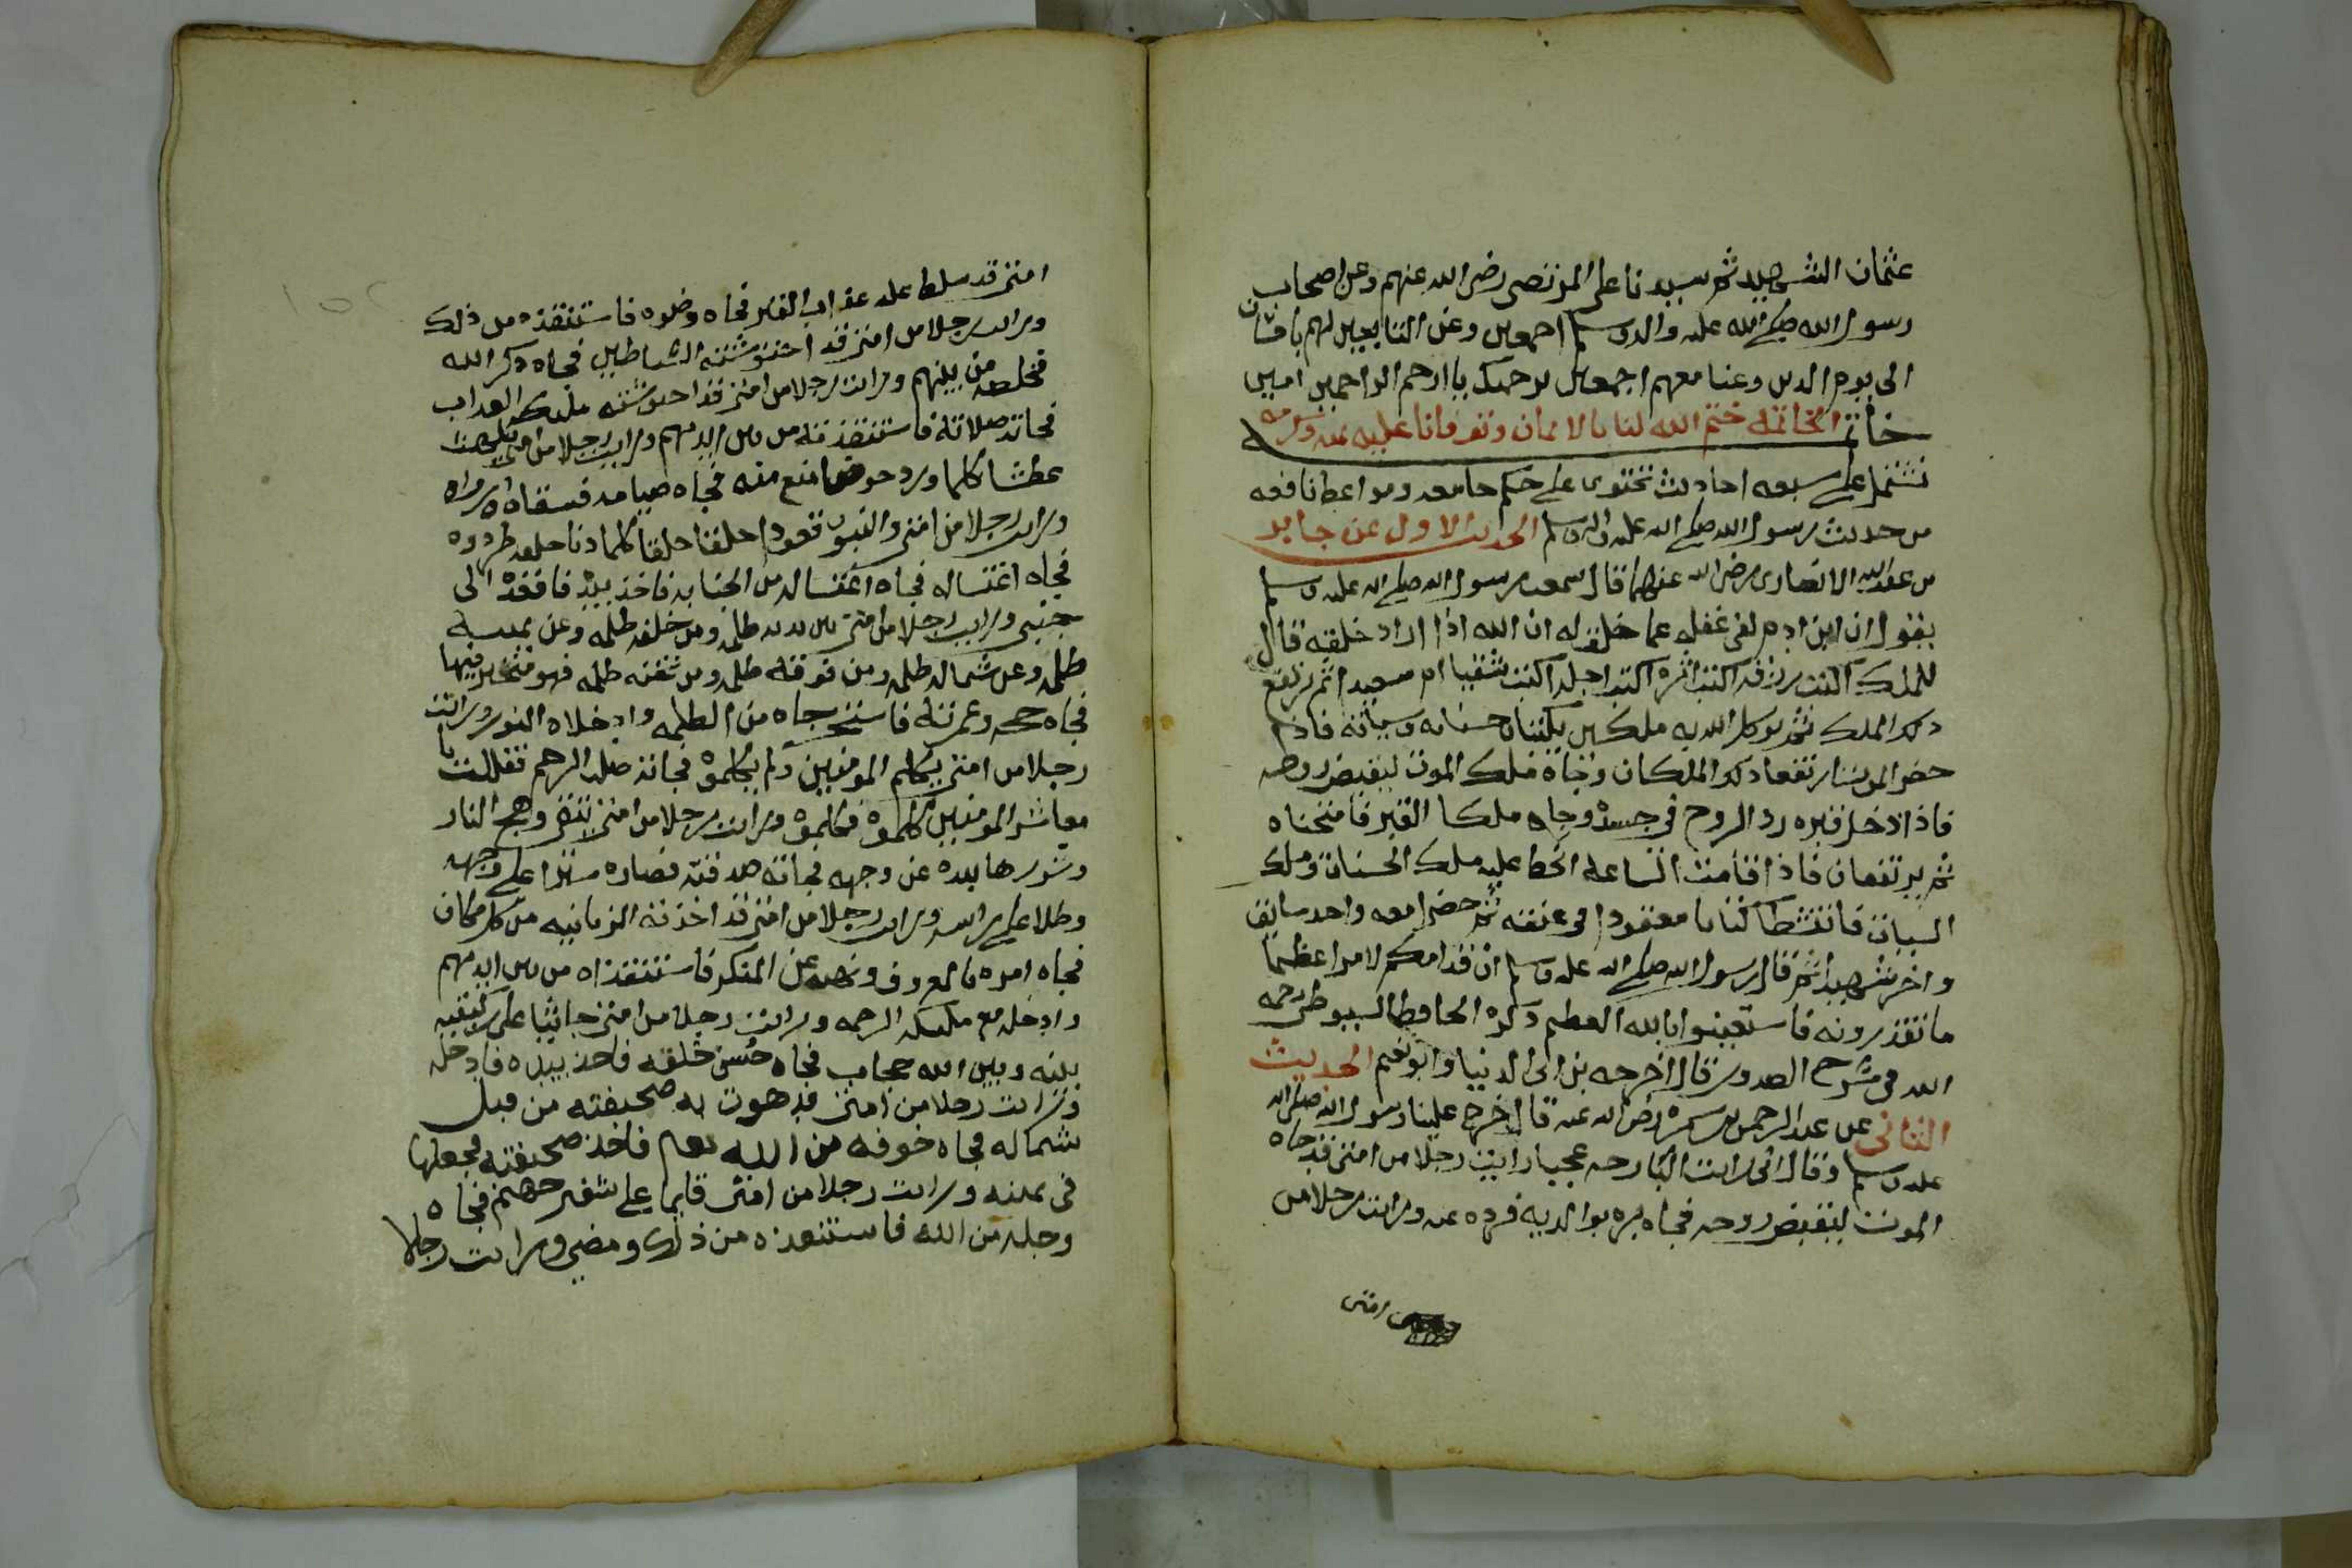 عثمان الشهيد ثم سيدنا على المرتضى رضى الله عنهم وعن اصحاب
رسول الله صلى الله عليه واله وسلم اجمعين وعن التابعين لهم باحسان
الى يوم الدين وعنا معهم اجمعين برحمتك يا ارحم الراحمين امين
خاتمة الخاتمة ختم الله لنا بالايمان وتوفانا عليه بمنه وكرمه
تشتمل على سبعه احاديث تحتوى على حكم جامعه ومواعظ نافعه
من حديث رسول الله صلى الله عليه واله وسلم الحديث الاول عن جابر
بن عبد الله الانصارى رضى الله عنهما قال سمعت رسول الله صلى الله عليه وسلم
يقول ان ابن ادم لفى غفله عما خلق له ان الله اذا اراد خلقه قال
للملك اكتب رزقه اكتب اثره اكتب اجله اكتب شقيا ام سعيدا ثم يرتفع
ذلك الملك ثم يوكل الله به ملكين يكتبان حسناته وسياته فاذا
حضر الموت ارتفعا ذلك الملكان وجاه ملك الموت ليقبض روحه
فاذا ادخل قبره رد الروح فى جسده وجاه ملكا القبر فامتحناه
ثم يرتفعان فاذا قامت الساعه انحط عليه ملك الحسنات وملك
السيات فانتشطا كتابا معقودا فى عنقه ثم حضرا معه واحد سايق
واخر شهيد ثم قال رسول الله صلى الله عليه وسلم ان قدامكم لامرا عظيما
ما تقدرونه فاستعينوا بالله العظيم ذكره الحافظ السيوطى رحمه
الله فى شرح الصدور قال اخرجه بن ابى الدنيا وابو نعيم الحديث
الثانى عن عبد الرحمن بن سمره رضى الله عنه قال خرج علينا رسول الله صلى الله
عليه وسلم وقال انى رايت البارحه عجبا رايت رجلا من امتى قد جاه
الموت ليقبض روحه فجاه بره بوالديه فرده عنه ورايت رجلا من
امتى
امتى قد سلط عليه عذاب القبر فجاه وضوه فاستنقذه من ذلك
ورايت رجلا من امتى قد احتوشته الشياطين فجاه ذكر الله
فخلصه من بينهم ورايت رجلا من امتى قد احتوشته ملائكة العذاب
فجاته صلاته فاستنقذته من بين ايديهم ورايت رجلا من امتى يلهث
عطشا كلما ورد حوضا منع منه فجاه صيامه فسقاه وارواه
ورايت رجلا من امتى والنبيون قعودا حلقا حلقا كلما دنا حلقه طردوه
فجاه اغتساله فجاه اغتساله من الجنابه فاخذ بيده فاقعده الى
جنبى ورايت رجلا من امتى بين يديه ظلمه ومن خلفه ظلمه وعن يمينه
ظلمه وعن شماله ظلمه ومن فوقه ظلمه ومن تحته ظلمه فهو متحير فيها
فجاه حجه وعمرته فاستخرجاه من الظلمه وادخلاه النور ورايت
رجلا من امتى يكلم المومنين ولم يكلموه فجاته صلة الرحم فقالت يا
معاشر المومنين كلموه فكلموه ورايت رجلا من امتى يتقى وهج النار
وشررها بيده عن وجهه فجاته صدقته فصارت سترا على وجهه
وظلا على راسه ورايت رجلا من امتى قد اخذته الزبانيه من كل مكان
فجاه امره بالمعروف ونهيه عن المنكر فاستنقذاه من بين ايديهم
وادخله مع ملائكة الرحمه ورايت رجلا من امتى جاثيا على ركبتيه
بينه وبين الله حجاب فجاه حسن خلقه فاخذ بيده فادخله
ورايت رجلا من امتى قد هوت به صحيفته من قبل
شماله فجاه خوفه من الله تعالى فاخذ صحيفته فجعلها
فى يمينه ورايت رجلا من امتى قايما على شفير جهنم فجاه
وجله من الله فاستنقذه من ذلك ومضى ورايت رجلا